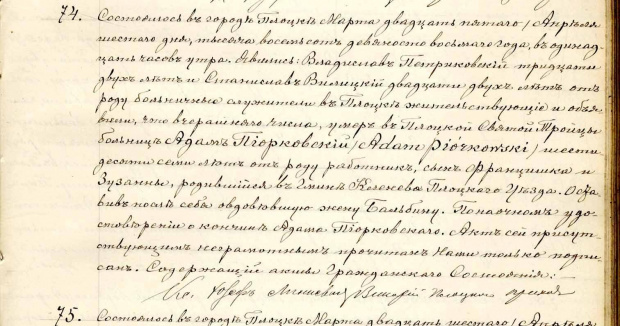 74. Состоялось въ городѣ Плоцкѣ Марта двадцать пятаго / Апрѣля
шестаго дня, тысяча восемьсотъ девяносто восьмаго года, въ одинад-
цать часовъ утра. Явились: Владиславъ Петриковскій тридцати
двухъ лѣтъ и Станиславъ Вилицкій двадцати двухъ лѣтъ отъ
роду больничные служители въ Плоцкѣ жительствующіе и объя-
вили, что вчерашняго числа, умеръ въ Плоцкой Святой Троицы
больницѣ Адамъ Піорковскій / Adam Piórkowski / шести
десяти семи лѣтъ отъ роду работникъ, сынъ Францишка и
Зузанны, родившійся въ Плоцкаго Уѣзда. Оста
вивъ послѣ себя овдовѣвшую жену Бальбину. По наочномъ удо-
стовѣреніи о кончинѣ Адама Піорковскаго. Актъ сей присут-
ствующимъ неграмотнымъ прочитанъ Нами только подпи
санъ. Содержащій акты Гражданскаго Состоянія:
Кс. Викарій Плоцкаго прихода
75. Состоялось въ городѣ Плоцкѣ Марта двадцать шестаго / Апрѣля